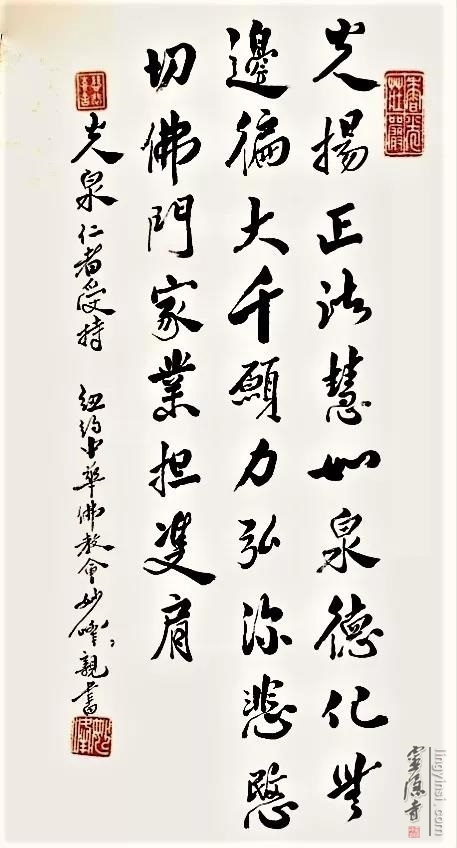 香光莊嚴
光揚正法慧如泉德化無
邊徧大千願力弘深悲懇
切佛門家業担雙肩
光泉仁者受持 紐約中華佛教會妙峰親書
靈隱寺
lingyinsi.com